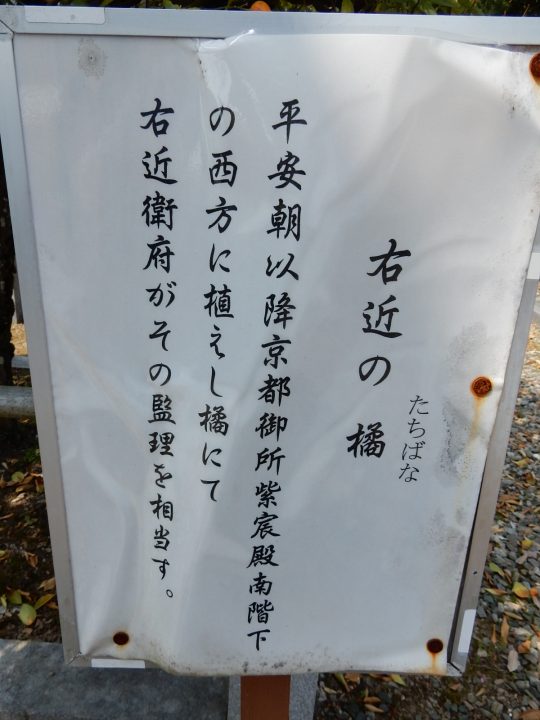 右近の橘
たちばな
平安朝以降京都御所紫宸殿南階下
の西方に植えし橘にて
右近衛府がその監理を相当す。